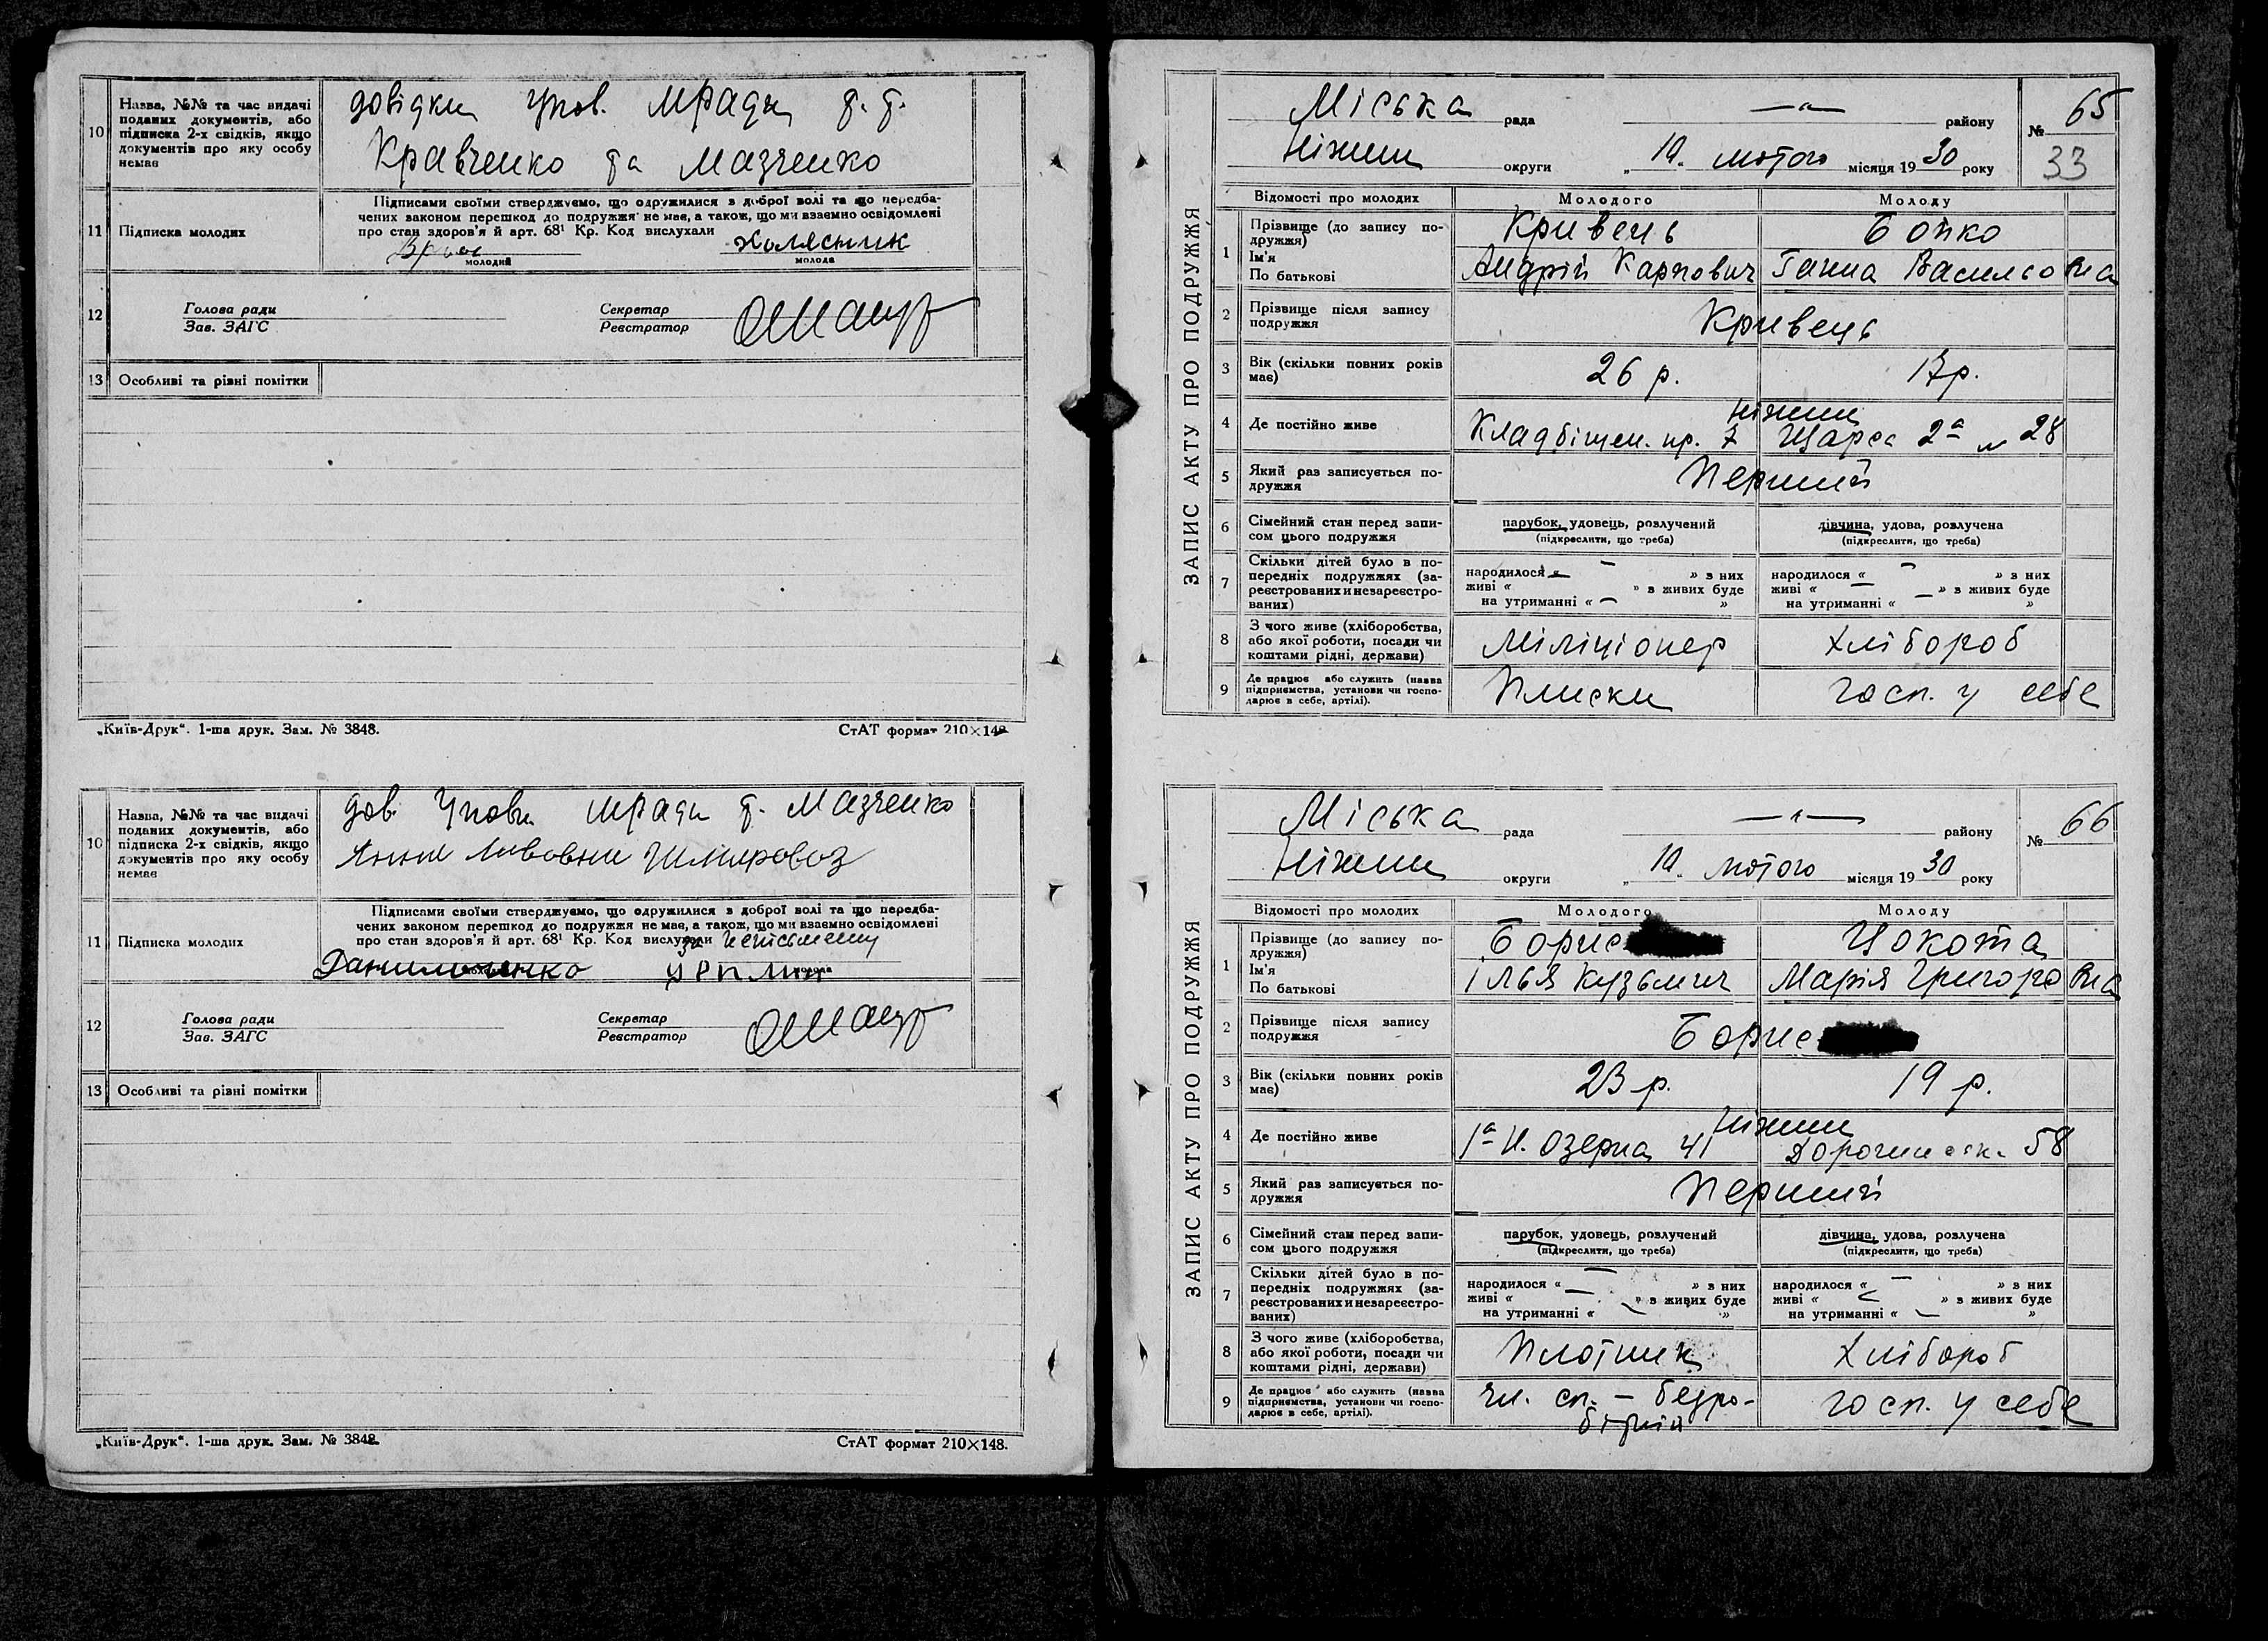 10
Назва, №№ та час видачі
поданих документів, або
підписка 2-х свідків, якщо
документів про яку особу
немає
довідки Упов. мРади т. т.
Кравченко та Мазченко
11
Підписка молодих
Підписами своїми стверджуємо, що одружилися з доброї волі та що передба-
чених законом перешкод до подружжя не має, а також, що ми взаємно освідомлені
про стан здоров'я й арт. 68¹ Кр. Код вислухали
Холясник
молодий
молода
12
Голова ради
Зав. ЗАГС
Секретар
Реєстратор
13
Особливі та різні помітки
„Київ-Друк“. 1-ша друк. Зам. № 3848.
СтАТ формат 210×148
10
Назва, №№ та час видачі
поданих документів, або
підписка 2-х свідків, якщо
документів про яку особу
немає
дов. Уповн. мРади т. Мазченко
11
Підписка молодих
Підписами своїми стверджуємо, що одружилися з доброї волі та що передба-
чених законом перешкод до подружжя не має, а також, що ми взаємно освідомлені
про стан здоров'я й арт. 68¹ Кр. Код вислухали
за неписьменну
12
Голова ради
Зав. ЗАГС
Секретар
Реєстратор
13
Особливі та різні помітки
„Київ-Друк“. 1-ша друк. Зам. № 3848.
СтАТ формат 210×148.
ЗАПИС АКТУ ПРО ПОДРУЖЖЯ
Міська рада
—„— району
№ 65
Ніжин округи
„10„ лютого місяця 1930 року
33
Відомості про молодих
Молодого
Молоду
1
Прізвище (до запису по-
дружжя)
Кривець
Бойко
Ім'я
По батькові
Андрій Карпович
Ганна Васильовна
2
Прізвище після запису
подружжя
Кривець
3
Вік (скільки повних років
має)
26 р.
17 р.
4
Де постійно живе
Ніжин
Кладбіщен. пр. 7
2а № 28
5
Який раз записується по-
дружжя
Перший
6
Сімейний стан перед запи-
сом цього подружжя
парубок, удовець, розлучений
(підкреслити, що треба)
дівчина, удова, розлучена
(підкреслити, що треба)
7
Скільки дітей було в по-
передніх подружжях (за-
реєстрованих и незареєстро-
ваних)
народилося « — » з них
живі « — » з живих буде
на утриманні « — »
народилося « — » з них
живі « — » з живих буде
на утриманні « — »
8
З чого живе (хліборобства,
або якої роботи, посади чи
коштами рідні, держави)
Міліціонер
Хлібороб
9
Де працює або служить (назва
підприємства, установи чи госпо-
дарює в себе, артілі).
Плиски
госп. у себе
ЗАПИС АКТУ ПРО ПОДРУЖЖЯ
Міська рада
—„— району
№ 66
Ніжин округи
„10„ лютого місяця 1930 року
Відомості про молодих
Молодого
Молоду
1
Прізвище (до запису по-
дружжя)
Борис
Цокота
Ім'я
По батькові
Ілья Кузьмич
Марія Григоровна
2
Прізвище після запису
подружжя
Борис
3
Вік (скільки повних років
має)
23 р.
19 р.
4
Де постійно живе
Ніжин
1а Н. Озерна 41
58
5
Який раз записується по-
дружжя
Перший
6
Сімейний стан перед запи-
сом цього подружжя
парубок, удовець, розлучений
(підкреслити, що треба)
дівчина, удова, розлучена
(підкреслити, що треба)
7
Скільки дітей було в по-
передніх подружжях (за-
реєстрованих и незареєстро-
ваних)
народилося « — » з них
живі « — » з живих буде
на утриманні « — »
народилося « — » з них
живі « — » з живих буде
на утриманні « — »
8
З чого живе (хліборобства,
або якої роботи, посади чи
коштами рідні, держави)
Плотник
Хлібороб
9
Де працює або служить (назва
підприємства, установи чи госпо-
дарює в себе, артілі).
чл. сп. – безро-
бітній
госп. у себе